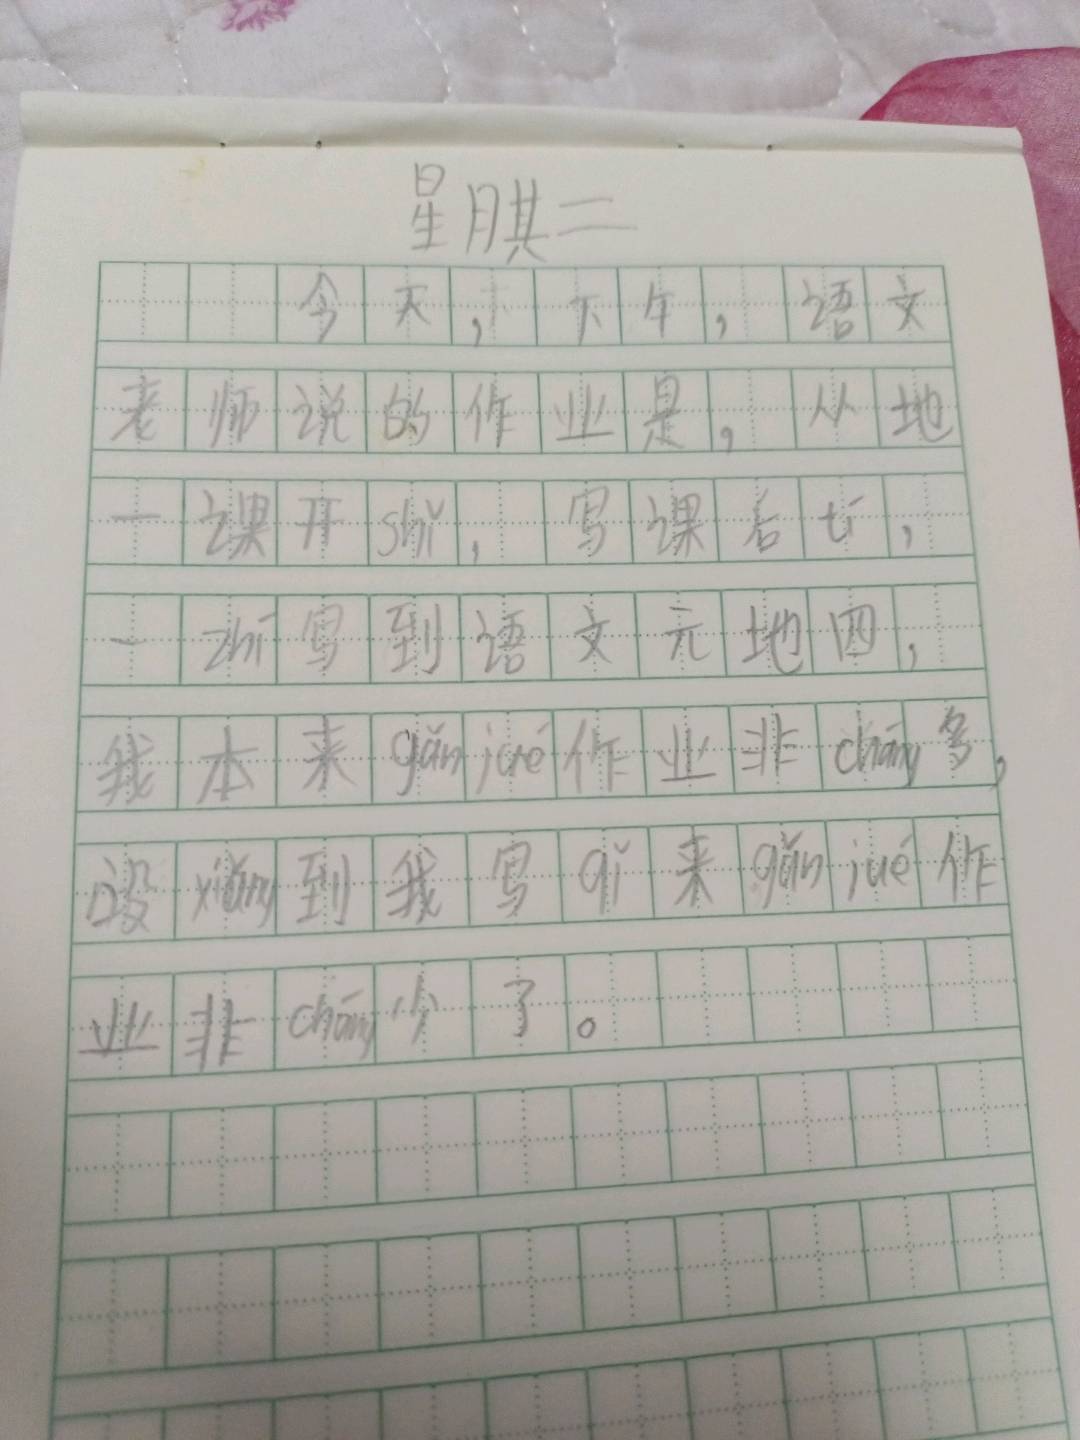 星期二
今天,下午,语文
老师说的作业是,从地
一课开shǐ,写课后tí,
一zhí写到语文元地四,
我本来gǎnjué作业非cháng多,
没xiǎng到我写qǐ来gǎnjué作
业非cháng少了。